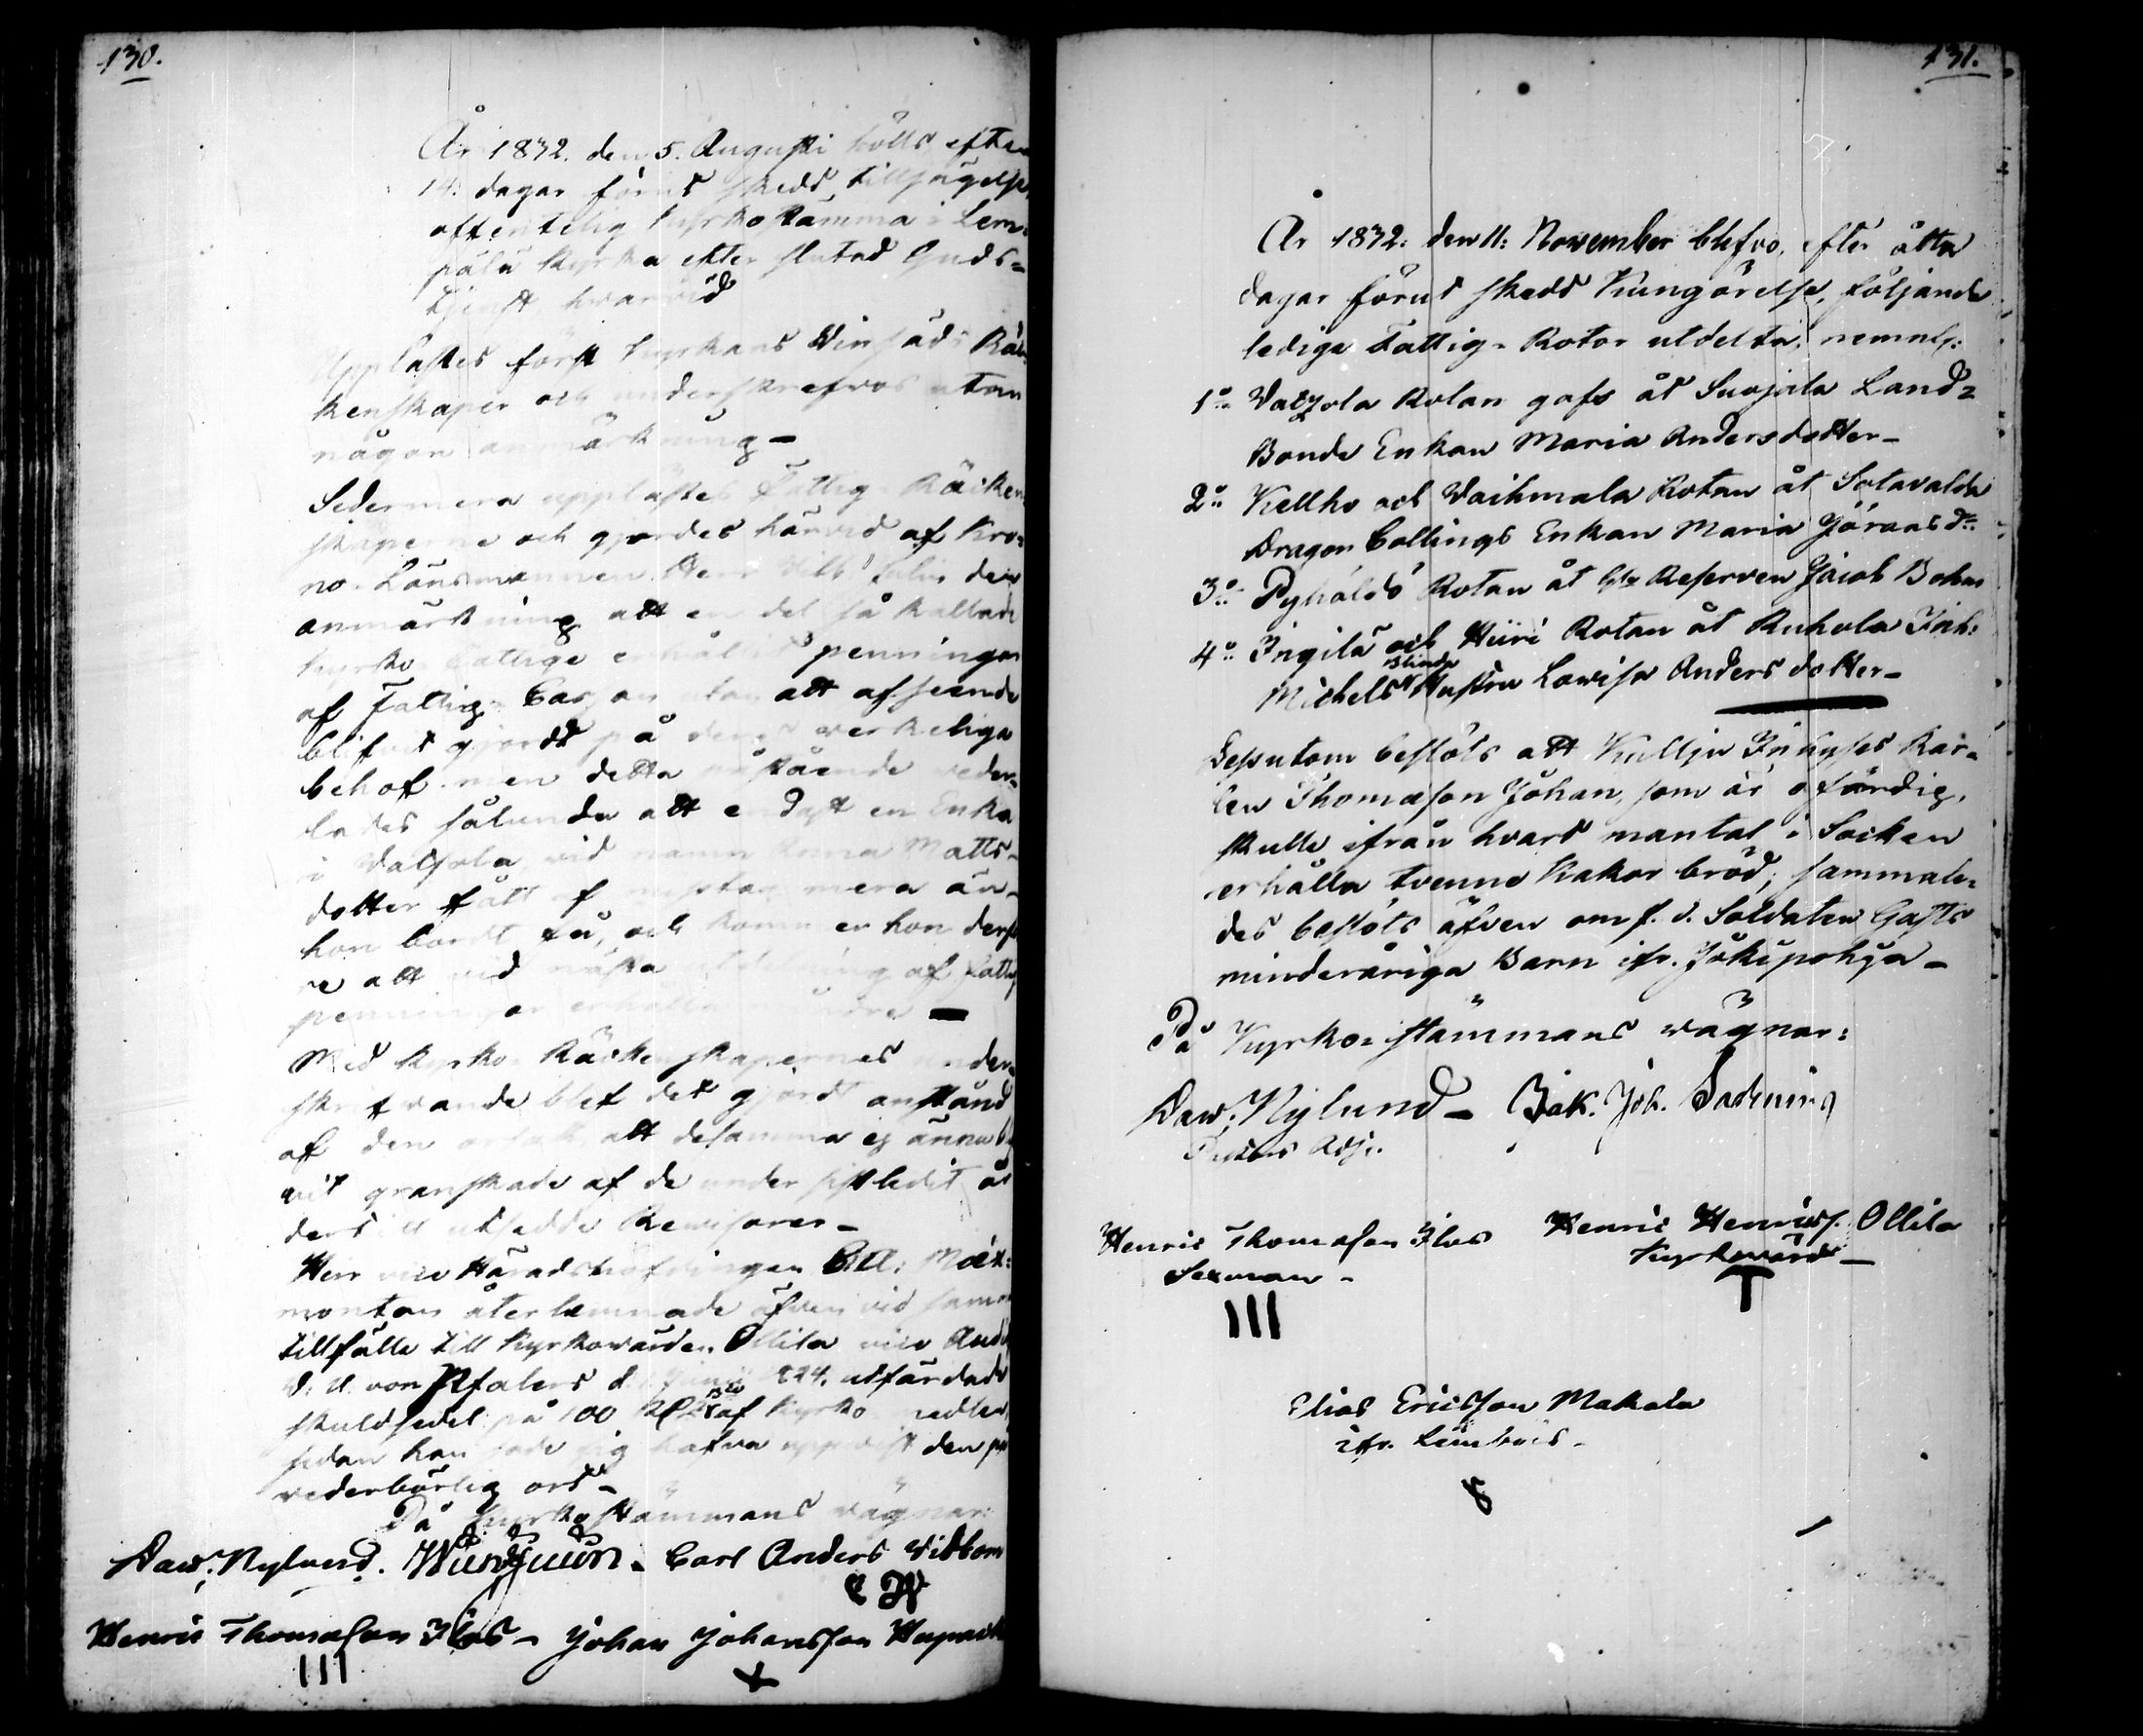 130.
År 1832. den 5. Augusti hölls efter
14. dagar förut skedd tillsägelse
offentelig kyrkostämma i Lem-
pälä kyrka efter slutad Guds-
tjenst, hvarvid
Upplästes först kyrkans Winsäds Räk-
kenskaper och underskrefvos utan
någon anmärkning –
Sedermera upplästes Fattig-Räcken-
skaperne och gjordes härvid af Kro-
no-Länsmannen Herr den
anmärkning att en del så kallade
kyrko fattige erhållit penningar
af Fattig-Cassan utan att afseende
blifvit gjordt på deras verkeliga
behof. men detta påstående veder-
lades sålunda att endast en Enka
i Vatjola vid namn Anna Matts-
dotter fått af misstag mera än
hon bordt få, och kommer hon derfö
re att vid nästa utdelning af fattig
penningar erhålla mindre –
Med Kyrko-Räckenskapernes under-
skrifvande blef det gjordt anstånd
af den orsak att desamma ej ännu bli
vit granskade af de under sistledit år
dertill utsedde Revisorer –
Herr vice Häradshöfdingen
montan återlemnade äfven vid samma
tillfälle till kyrkovärden Ollila
von Pfalers d. 824. utfärdade
skuldsedel på 100 af Kyrko medlen,
sedan han sade sig hafva uppvist den på
vederbörlig ort –
På Kyrkostämmans vägnar:
Daw. Nylund. Carl Anders Widbom
C W
Henric Thomasson Ilos – Johan Johansson
III
131.
År 1832. den 11. November blefvo, efter åtta
dagar förut skedd Kungörelse, följande
lediga Fattig-Rotor utdelta, nemnl:
1o Vatjola Rotan gafs åt Suojala Land-
Bonde Enkan Maria Andersdotter –
2o Kellho och Vaihmala Rotan åt Sotavalda
Dragon Collings Enkan Maria Göransdr.
3o Pyhäldö Rotan åt Reserven Jacob Bohm
4o Ingilä och Hiiri Rotan åt Ruhola Inh:
Blinde
Michels Hustru Lovisa Andersdotter –
Dessutom beslöts att Kulju Inhyses Kar-
len Thomasson Johan, som är ofärdig,
skulle ifrån hvart mantal i Socken
erhålla tvenne kakor bröd; sammale-
des beslöts äfven om f. d. Soldaten Gasts
minderåriga Barn ifr. Jokipohja –
På Kyrko-stämmans vägnar:
Daw. Nylund – Isak. Joh.
Pastors Adj.
Henric Thomasson Ilos
Sexman –
III
Henric Henricss. Ollila
Kyrkovärd –
T
Elias Ericsson Makala
ifr.